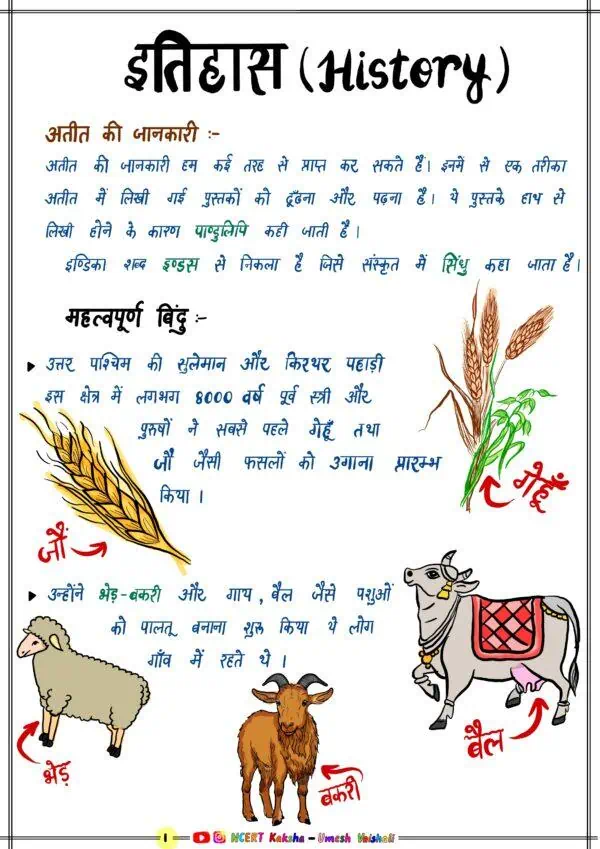 इतिहास (History)
अतीत की जानकारी :-
अतीत की जानकारी हम कई तरह से प्राप्त कर सकते हैं। इनमें से एक तरीका
अतीत में लिखी गई पुस्तकों को ढूँढना और पढ़ना है। ये पुस्तकें हाथ से
लिखी होने के कारण पाण्डुलिपि कही जाती है।
इण्डिका शब्द इण्डस से निकला है जिसे संस्कृत में सिंधु कहा जाता है।
महत्वपूर्ण बिंदु :-
उत्तर पश्चिम की सुलेमान और किरथर पहाड़ी
इस क्षेत्र में लगभग 8000 वर्ष पूर्व स्त्री और
पुरुषों ने सबसे पहले गेहूँ तथा
जौ जैसी फसलों को उगाना प्रारम्भ
किया।
गेहूँ
जौं
उन्होंने भेड़-बकरी और गाय, बैल जैसे पशुओं
को पालतू बनाना शुरू किया ये लोग
गाँव में रहते थे।
भेड़
बकरी
बैल
1 NCERT Kaksha - Umesh Vaishali